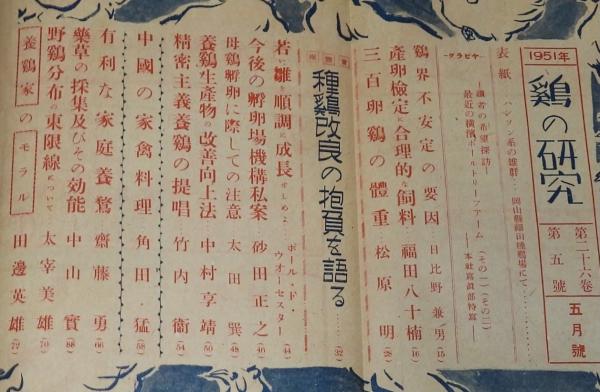 1951年
鷄の研究
第二十六卷
第五號
五月號
表紙
ハンプシャー系の雄群……岡山縣種鷄場にて……
―グラビヤ―
識者の希望探訪
最近の横濱ポールトリーファーム(その一)(その二)
―本社寫眞部特寫―
鷄界不安定の要因 日比野兼男 (15)
產卵檢定に合理的な飼料 福田八十楠 (16)
三百卵鷄の體重 松原 明 (28)
種鷄改良の抱負を語る …… (32)
若い雛を順調に成長せしめよ ポール・ド・ウオーセスター (44)
今後の孵卵場機構私案 砂田正之 (46)
母鷄孵卵に際しての注意 太田 巽 (48)
養鷄生產物の改善向上法 中村享靖 (50)
精密主義養鷄の提唱 竹內 衞 (54)
中國の家禽料理 角田・猛 (58)
有利な家庭養鶩 齋藤 勇 (66)
藥草の採集及びその効能 中山 實 (68)
野鷄分布の東限線について 太宰美雄 (70)
養鷄家のモラル 田邊英雄 (72)